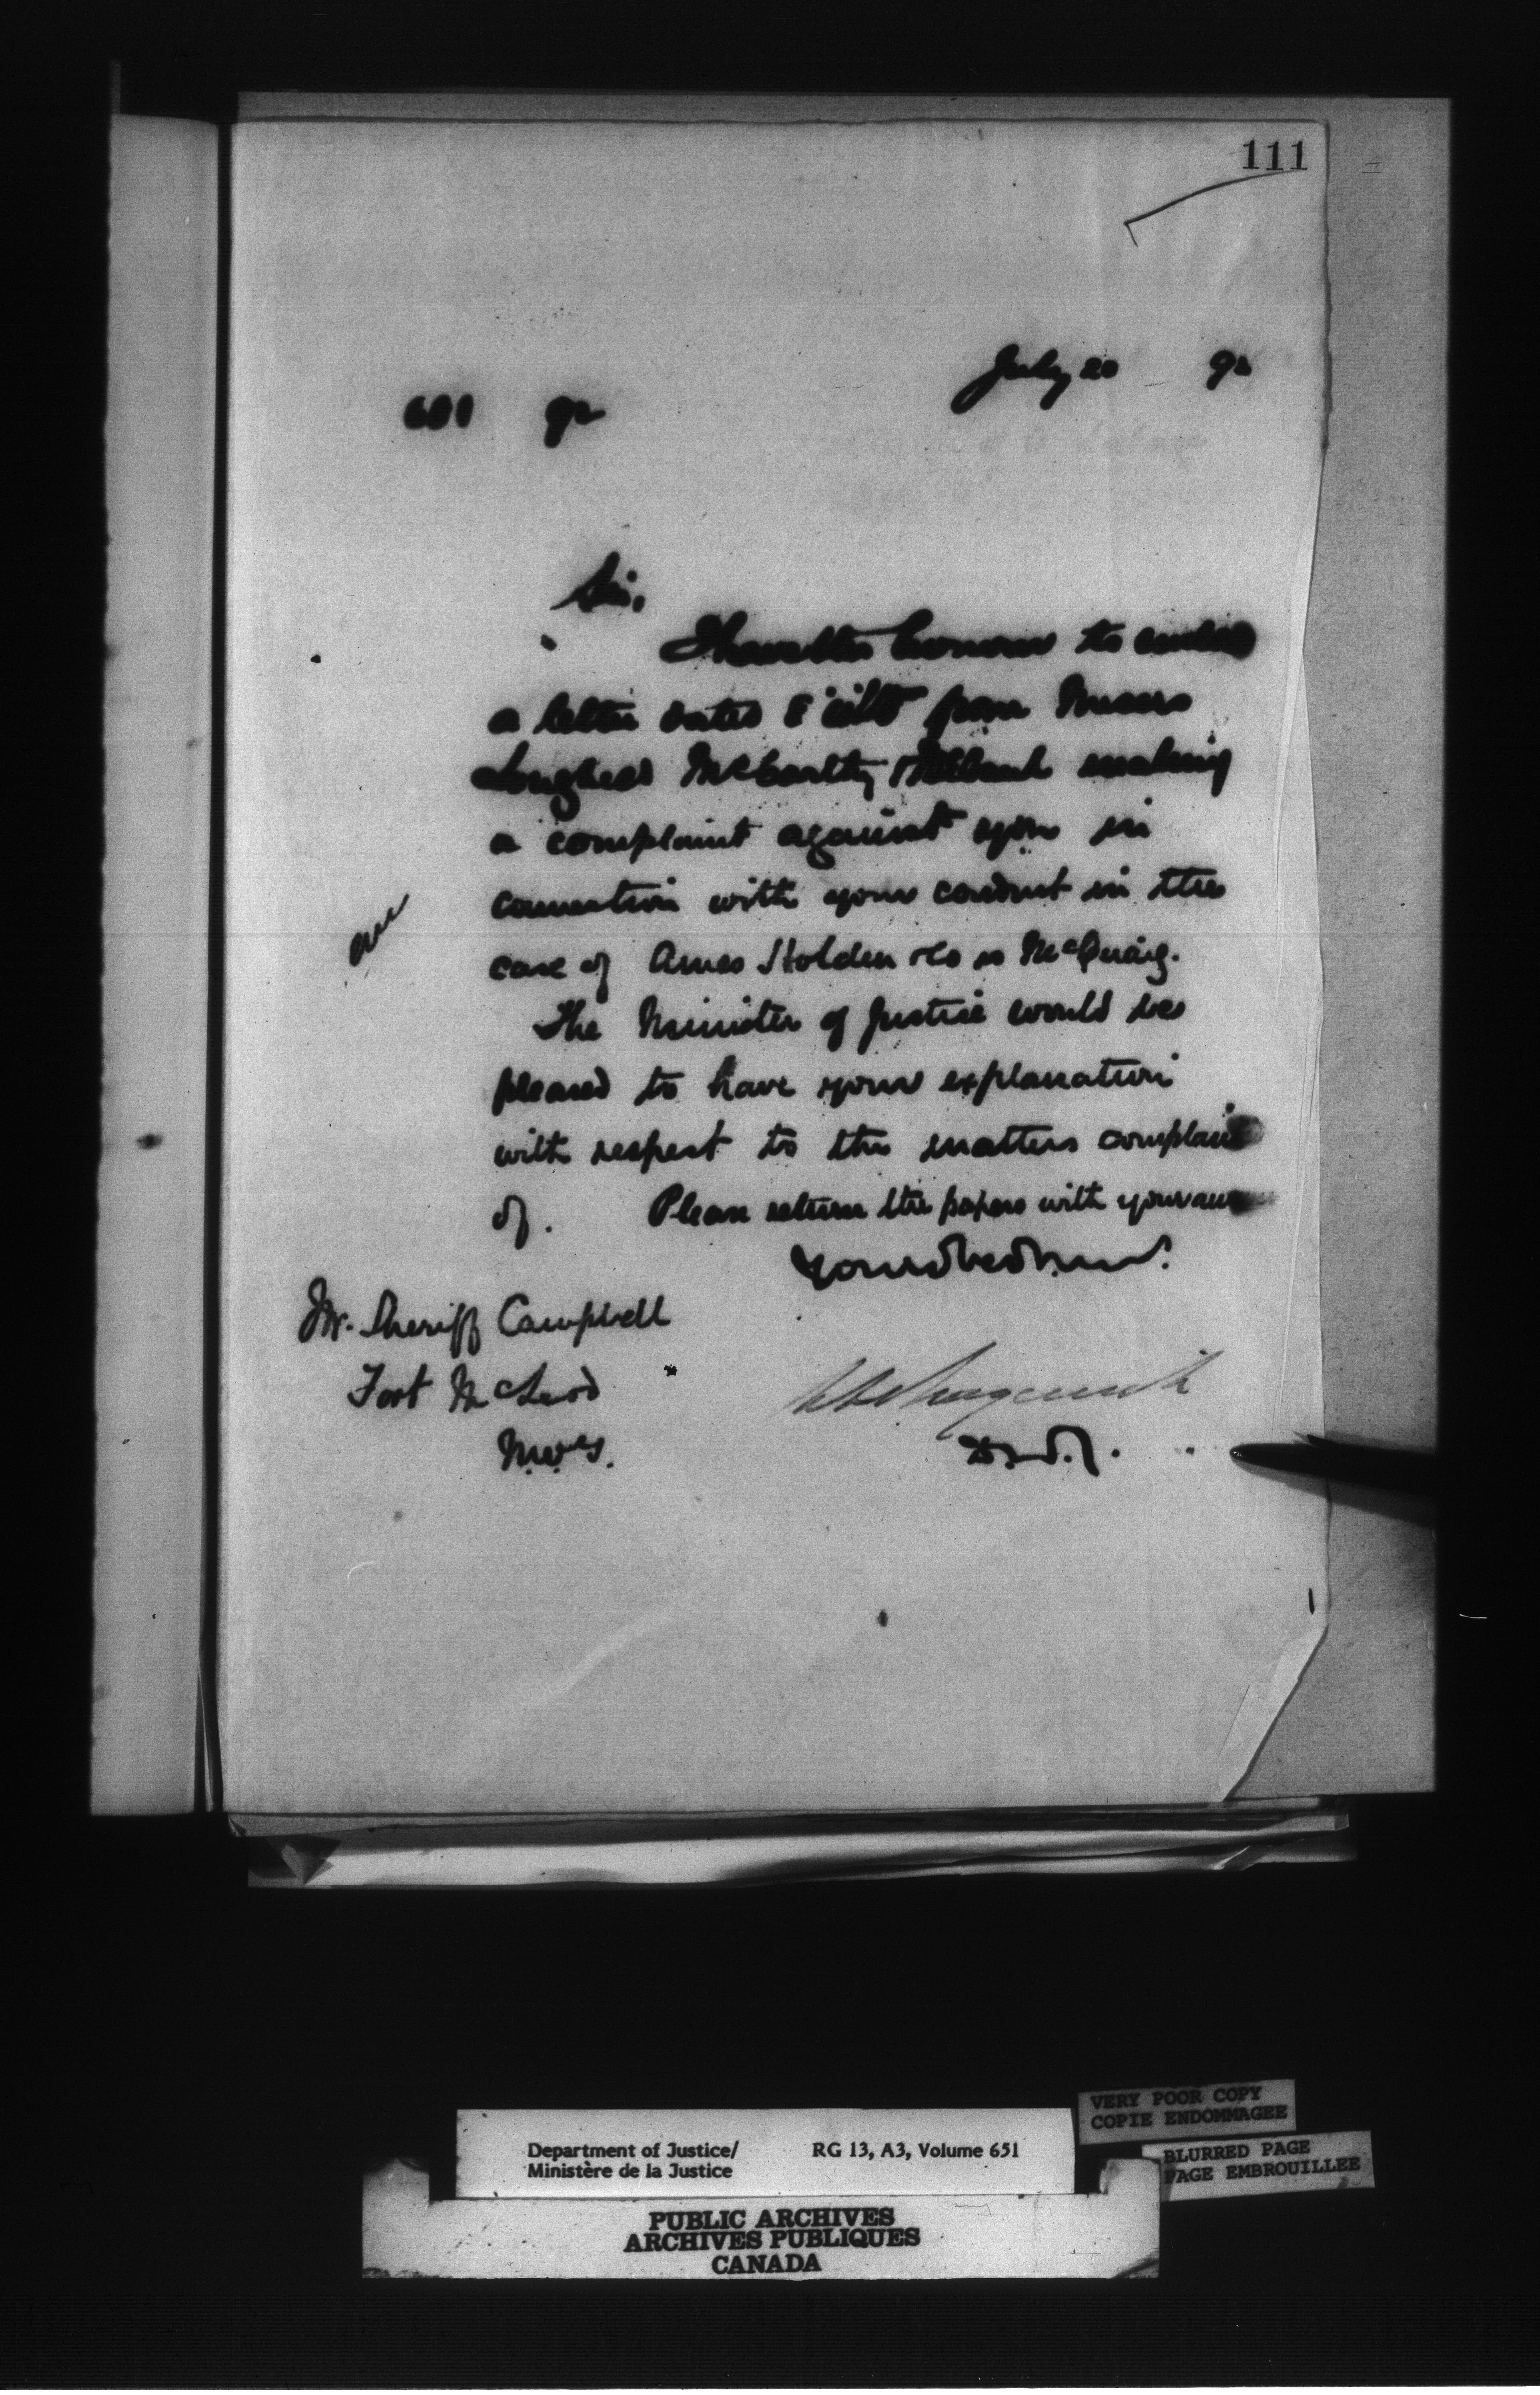 111
July 20 92
601 92
Sir,
I have the honour to enclose
a letter dated 8 ulto from Messrs
Lougheed McCarthy & making
a complaint against you in
connection with your conduct in the
case of Ames Holden & Co vs McQuaig.
The Minister of Justice would be
pleased to have your explanation
with respect to the matters complained
of. Please return the papers with your answer
Mr. Sheriff Campbell
Fort McLeod
N.W.T.
D.M.J.
VERY POOR COPY
COPIE ENDOMMAGEE
BLURRED PAGE
PAGE EMBROUILLEE
Department of Justice/ RG 13, A3, Volume 651
Ministère de la Justice
PUBLIC ARCHIVES
ARCHIVES PUBLIQUES
CANADA